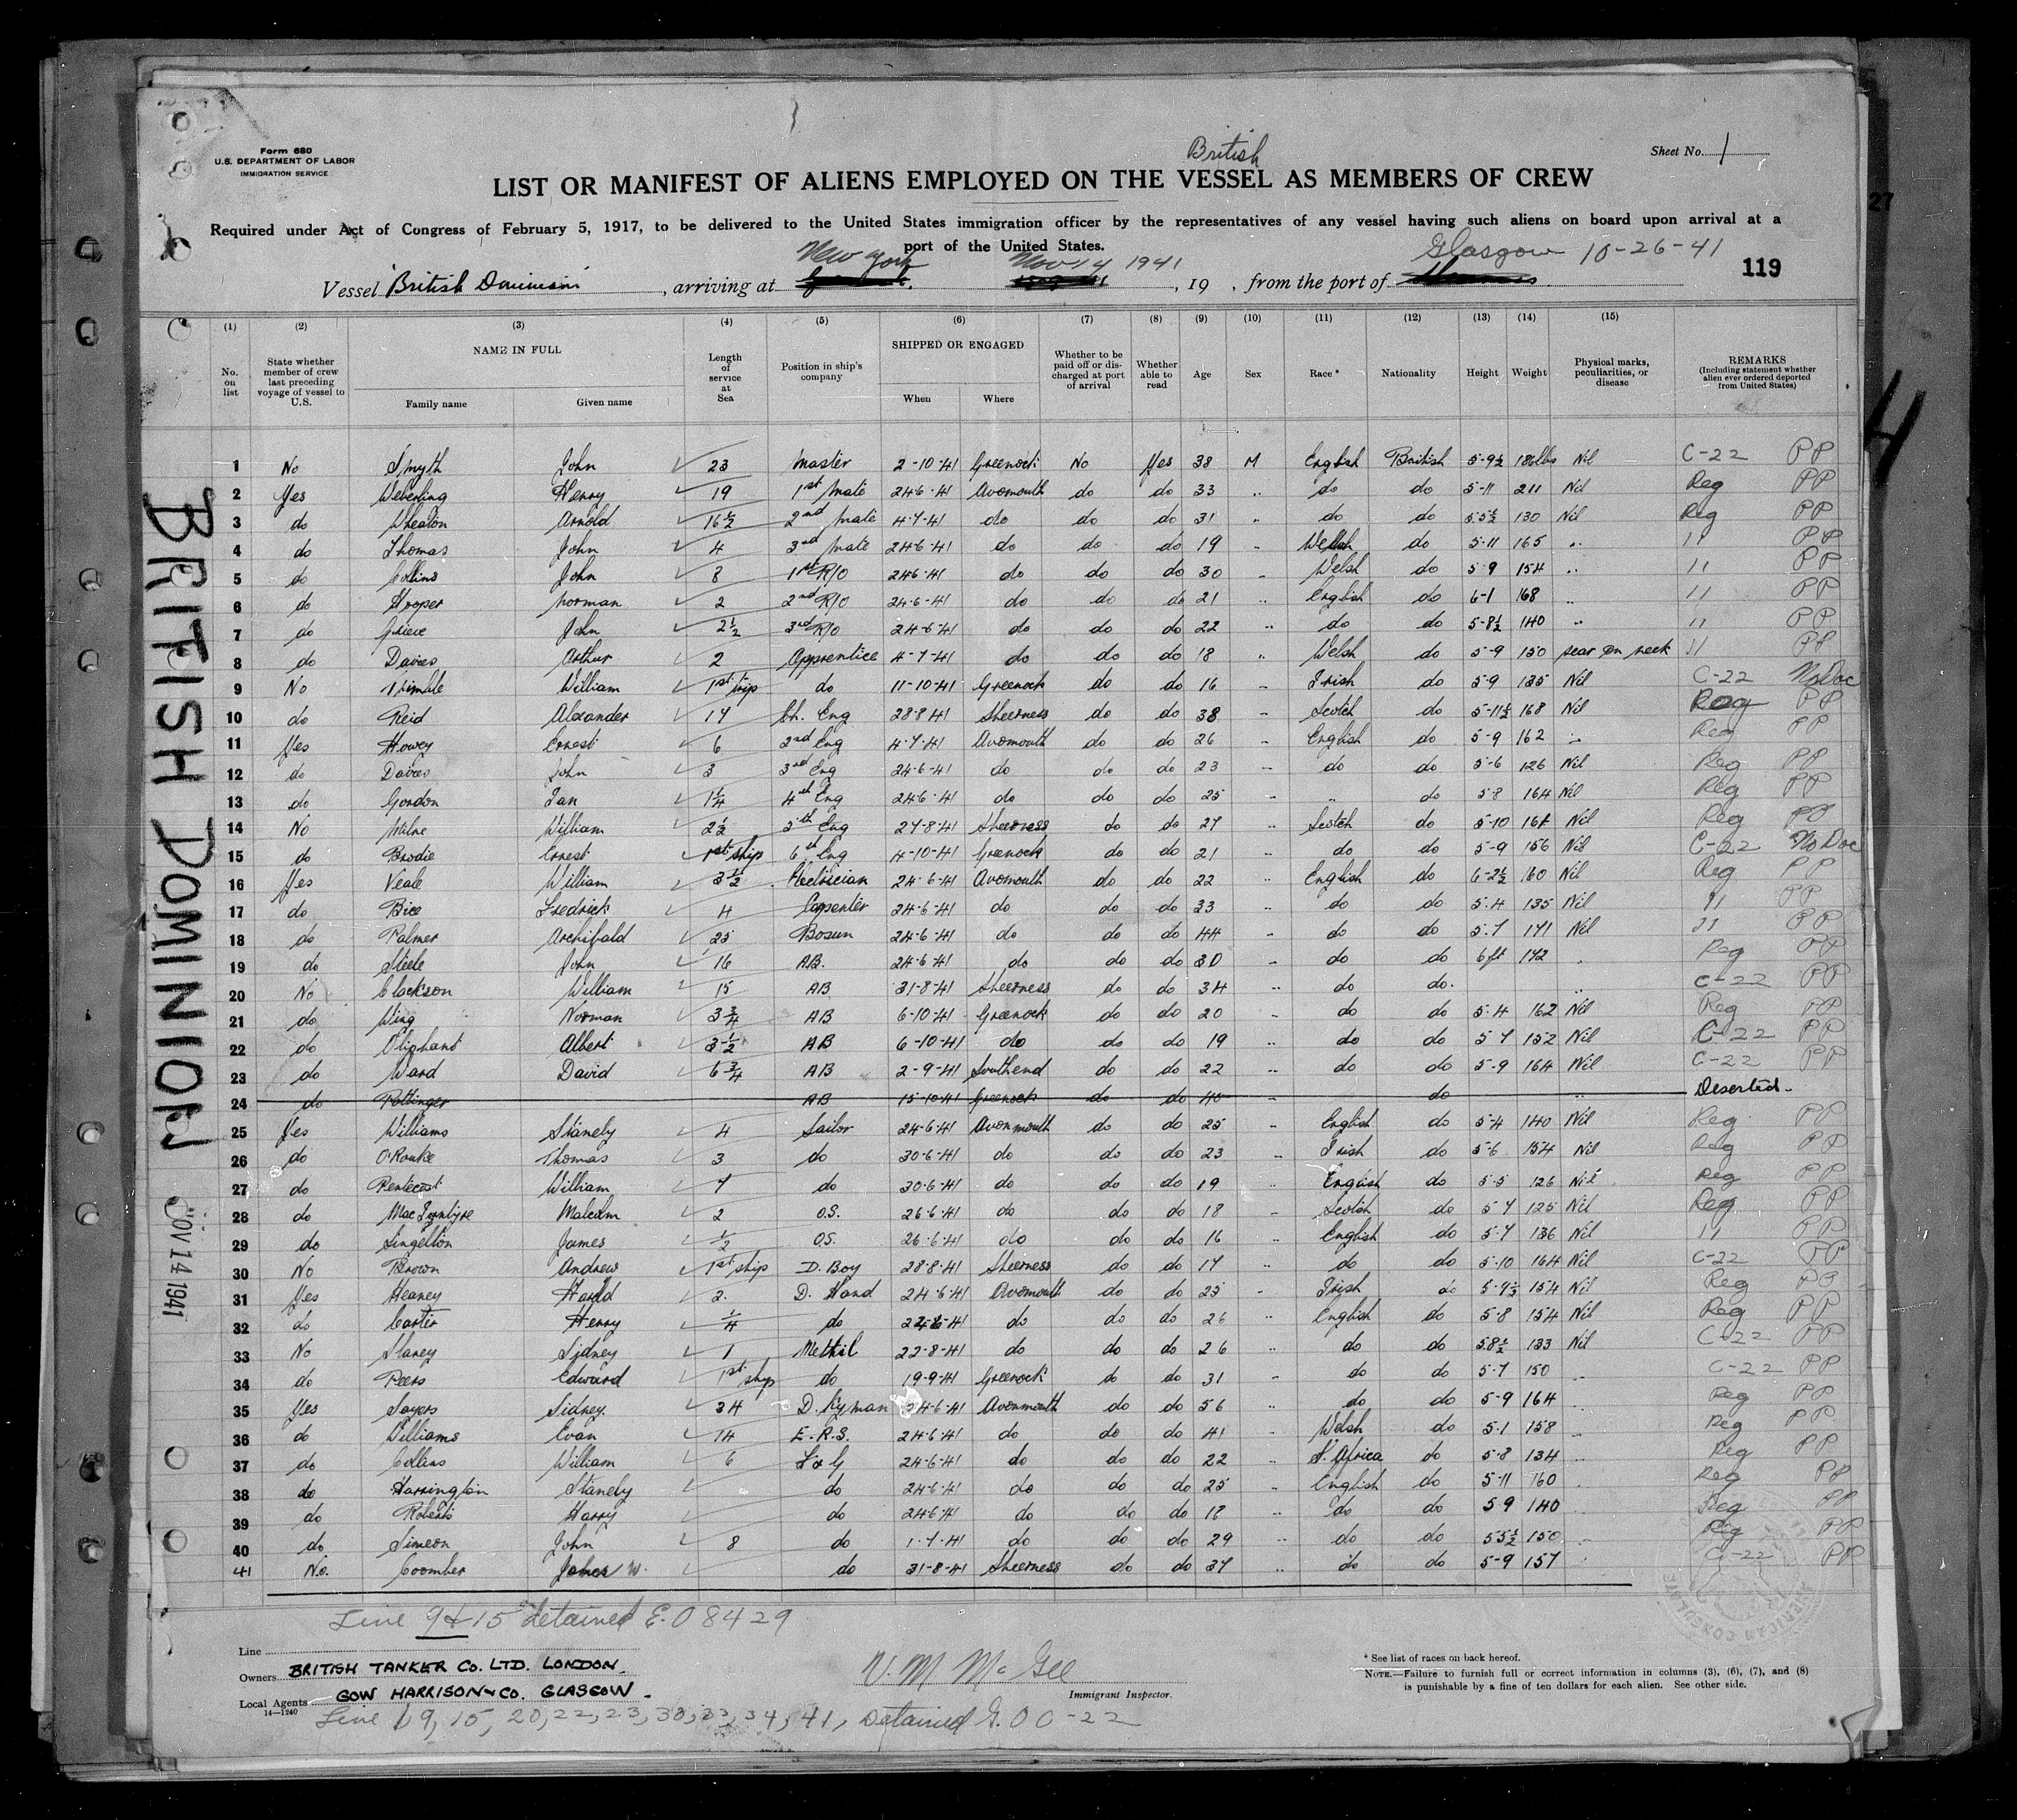 British
Form 680
U.S. DEPARTMENT OF LABOR
IMMIGRATION SERVICE
Sheet No. 1
LIST OR MANIFEST OF ALIENS EMPLOYED ON THE VESSEL AS MEMBERS OF CREW
Required under Act of Congress of February 5, 1917, to be delivered to the United States immigration officer by the representatives of any vessel having such aliens on board upon arrival at a
port of the United States.
New York Nov 14 1941 Glasgow 10-26-41
Vessel "British Dominion", arriving at , 19 , from the port of 119
(1) (2) (3) (4) (5) (6) (7) (8) (9) (10) (11) (12) (13) (14) (15)
No. on list State whether member of crew last preceding voyage of vessel to U.S. NAME IN FULL Family name Given name Length of service at Sea Position in ship's company SHIPPED OR ENGAGED When Where Whether to be paid off or discharged at port of arrival Whether able to read Age Sex Race* Nationality Height Weight Physical marks, peculiarities, or disease REMARKS (Including statement whether alien ever ordered deported from United States)
1 No Smyth John 23 Master 2-10-41 Greenock No Yes 38 M English British 5-9½ 186lbs Nil C-22 PP
2 Yes Weberling Henry 19 1st Mate 24-6-41 Avomouth do do 33 " do do 5-11 211 Nil Reg PP
3 do Wheaton Arnold 16½ 2nd Mate 4-7-41 do do do 31 " do do 5-5½ 130 Nil Reg PP
4 do Thomas John 4 3rd Mate 24-6-41 do do do 19 Welsh do 5-11 165 " 11 PP
5 do Collins John 8 1st R/O 24-6-41 do do do 30 Welsh do 5-9 154 " 11 PP
6 do Hooper Norman 2 2nd R/O 24-6-41 do do do 21 " English do 6-1 168 " 11 PP
7 do Grieve John 2½ 3rd R/O 24-6-41 do do do 22 " do do 5-8½ 140 " 11 PP
8 do Davies Arthur 2 Apprentice 4-7-41 do do do 18 " Welsh do 5-9 150 scar on neck 11 PP
9 No William 1st trip do 11-10-41 Greenock do do 16 Irish do 5-9 135 Nil C-22 No Doc
10 do Reid Alexander 17 Ch. Eng 28-8-41 Sheerness do do 38 Scotch do 5-11½ 168 Nil Reg PP
11 Yes Howey Ernest 6 2nd Eng 4-7-41 Avomouth do do 26 English do 5-9 162 Reg PP
12 do Davies John 3 3rd Eng 24-6-41 do do do 23 do do 5-6 126 Nil Reg PP
13 do Gordon Ian 1¼ 4th Eng 24-6-41 do do do 25 " do 5-8 164 Nil Reg PP
14 No Milne William 2½ 5th Eng 27-8-41 Sheerness do do 27 " Scotch do 5-10 Nil Reg PP
15 do Brodie Ernest 1st ship 6th Eng 4-10-41 Greenock do do 21 " do do 5-9 156 Nil C-22 No Doc
16 Yes Veale William 3½ Electrician 24-6-41 Avomouth do do 22 " English do 6-2½ 180 Nil Reg PP
17 do Bice Fredrick 4 Carpenter 24-6-41 do do do 33 " do do 5-4 135 Nil 11 PP
18 do Palmer Archibald 25 Bosun 24-6-41 do do do 44 do do 5-7 171 Nil 11 PP
19 do Steele John 16 AB. 24-6-41 do do do 30 do do 6ft 172 Reg PP
20 No Clackson William 15 AB 31-8-41 Sheerness do do 34 " do do. " C-22 PP
21 do Wing Norman 3¾ AB 6-10-41 Greenock do do 20 " do do 5-4 162 Nil Reg PP
22 do Oliphant Albert 3½ AB 6-10-41 do do do 19 " do do 5-7 152 Nil C-22 PP
23 do Ward David 6¾ AB 2-9-41 Southend do do 22 " do do 5-9 164 Nil C-22 PP
24 do Pottinger AB 15-10-41 Greenock do do 40 do " Deserted
25 Yes Williams Stanely 4 Sailor 24-6-41 Avonmouth do do 25 English do 5-4 140 Nil Reg PP
26 do O'Rouke Thomas 3 do 30-6-41 do do do 23 " Irish do 5-6 154 Nil Reg PP
27 do Pentecost William 7 do 30-6-41 do do do 19 " English do 5-5 126 Nil Reg PP
28 do Malcolm 2 O.S. 26-6-41 do do do 18 " Scotch do 5-7 125 Nil Reg PP
29 do Singelton James ½ O.S. 26-6-41 do do do 16 " English do 5-7 136 Nil 11 PP
30 No Brown Andrew 1st ship D. Boy 28-8-41 Sheerness do do 17 " do do 5-10 164 Nil C-22 PP
31 Yes Heaney Harold 2 D. Hand 24-6-41 Avomouth do do 25 Irish do 154 Nil Reg PP
32 do Carter Henry ¼ do do do do 26 " English do 5-8 154 Nil Reg PP
33 No Slaney Sidney 1 22-8-41 do do do 26 " do do 5-8½ 133 Nil C-22 PP
34 do Peers Edward 1st ship do 19-9-41 Greenock do do 31 do do 5-7 150 C-22 PP
35 Yes Sayers Sidney. 34 D. Kyman 24-6-41 Avonmouth do do 56 " do do 5-9 164 Reg PP
36 do Williams Evan 14 E.R.S. 24-6-41 do do do 41 Welsh do 5-1 158 Reg PP
37 do Collins William 6 F & G 24-6-41 do do do 22 " S. Africa do 5-8 134 Reg PP
38 do Harrington Stanely do 24-6-41 do do do 25 " English do 5-11 160 Reg PP
39 do Roberts Harry do 24-6-41 do do do 18 " do do 5-9 140 Reg PP
40 do Simeon John 8 do 1-7-41 do do do 29 " do do 5-5½ 150 Reg PP
41 No. Coomber James W. do 31-8-41 Sheerness do do 37 " do do 5-9 157 C-22 PP
Line 9 & 15 detained E.O 8429
Line
Owners BRITISH TANKER CO. LTD. LONDON.
Local Agents GOW HARRISON & CO. GLASGOW.
14—1240
V. M. McGee
Immigrant Inspector.
* See list of races on back hereof.
NOTE.—Failure to furnish full or correct information in columns (3), (6), (7), and (8)
is punishable by a fine of ten dollars for each alien. See other side.
Line 1, 9, 15, 20, 22, 23, 30, 33, 34, 41, Detained G.O C-22
BRITISH DOMINION
NOV 14 1941
4
27
AMERICAN CONSULATE